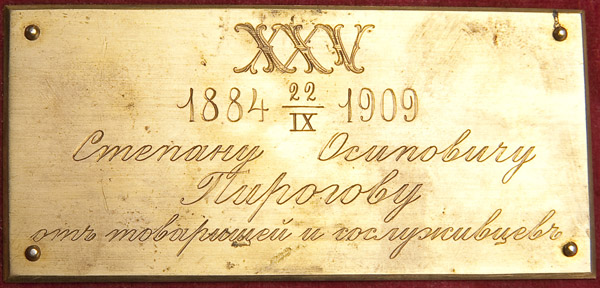 XXV
1884 22/IX 1909
Степану Осиповичу
Пирогову
отъ товарищей и сослуживцевъ